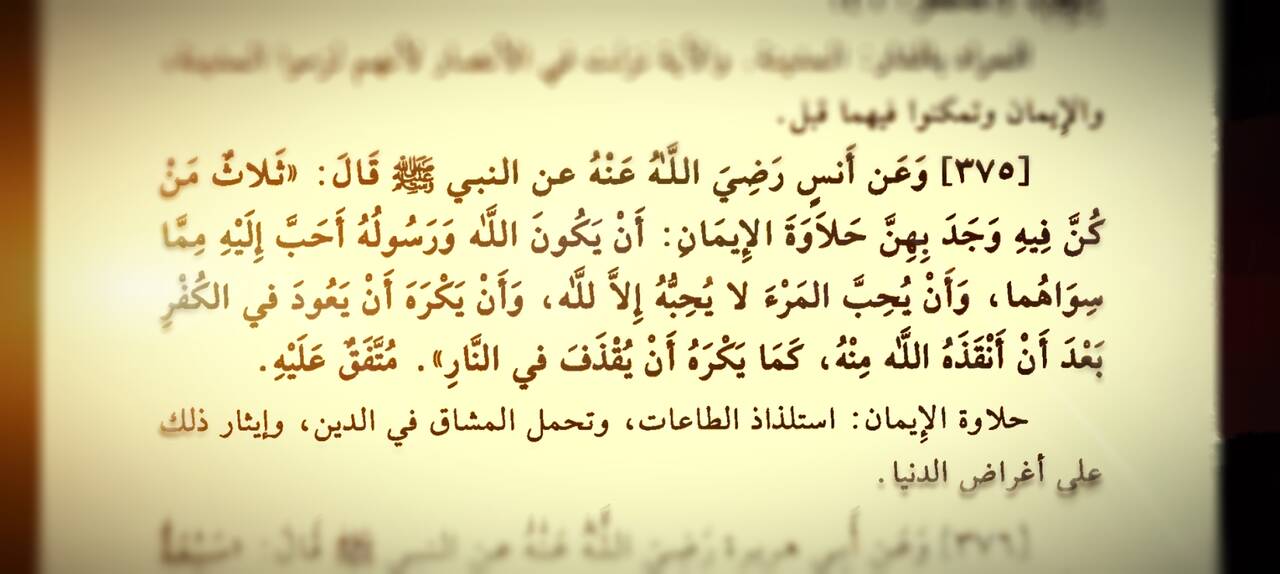 المراد بالدار: المدينة. والآية نزلت في الأنصار لأنهم لزموا المدينة،
والإيمان وتمكنوا فيهما قبل.
[٣٧٥] وَعَن أَنسٍ رَضِيَ اللَّهُ عَنْهُ عن النبي ﷺ قَالَ: «ثَلاثٌ مَنْ
كُنَّ فِيهِ وَجَدَ بِهِنَّ حَلاَوَةَ الإِيمَانِ: أَنْ يَكُونَ اللَّه وَرَسُولُهُ أَحَبَّ إِلَيْهِ مِمَّا
سِوَاهُما، وَأَنْ يُحِبَّ المَرْءَ لا يُحِبُّهُ إِلاَّ للَّه، وَأَنْ يَكْرَهَ أَنْ يَعُودَ في الكُفْرِ
بَعْدَ أَنْ أَنْقَذَهُ اللَّه مِنْهُ، كَمَا يَكْرَهُ أَنْ يُقْذَفَ في النَّارِ». مُتَّفَقٌ عَلَيْهِ.
حلاوة الإِيمان: استلذاذ الطاعات، وتحمل المشاق في الدين، وإيثار ذلك
على أغراض الدنيا.
[٣٧٦] وَعَن أَبي هريرة رَضِيَ اللَّهُ عَنْهُ عن النبي ﷺ قَالَ: